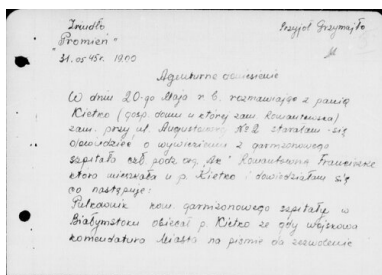 Źrudło Przyjął Grzymajło
"Promień"
31.05.45r. 19.00
Agenturne doniesienie
W dniu 20-go Maja r.b. rozmawiając z panią
Kietko (gosp. domu u której zam. Romantowska)
zam. przy ul. Augustowskiej № 2 starałam się
dowiedzieć o wywiezieniu z garnizonowego
szpitala czł. podz. org. "AK" Franciszkę
która mieszkała u p. Kietko i dowiedziałam się
co następuje:
Pułkownik kom. garnizonowego szpitalu w
Białymstoku obiecał p. Kietko że gdy wojskowa
komendatura Miasta na piśmie da zezwolenie